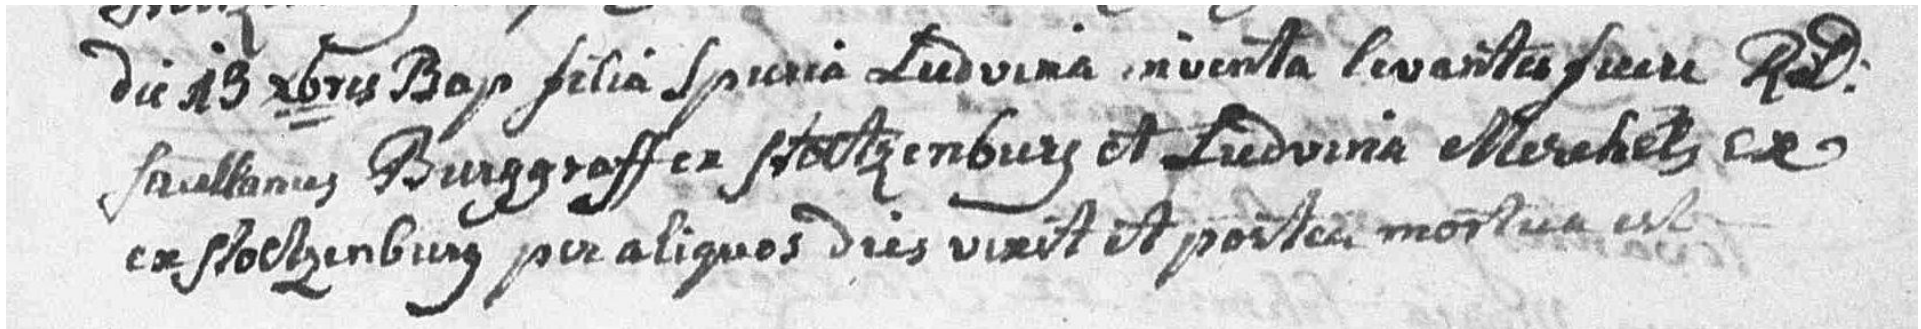 die 13 xbris Bap filia spuria Ludvina inventa levantes fuere R.D:
sacellanus Burggraff ex Stoltzenburg et Ludvina Merchels ex
ex Stoltzenburg per aliquos dies vixit et postea mortua est